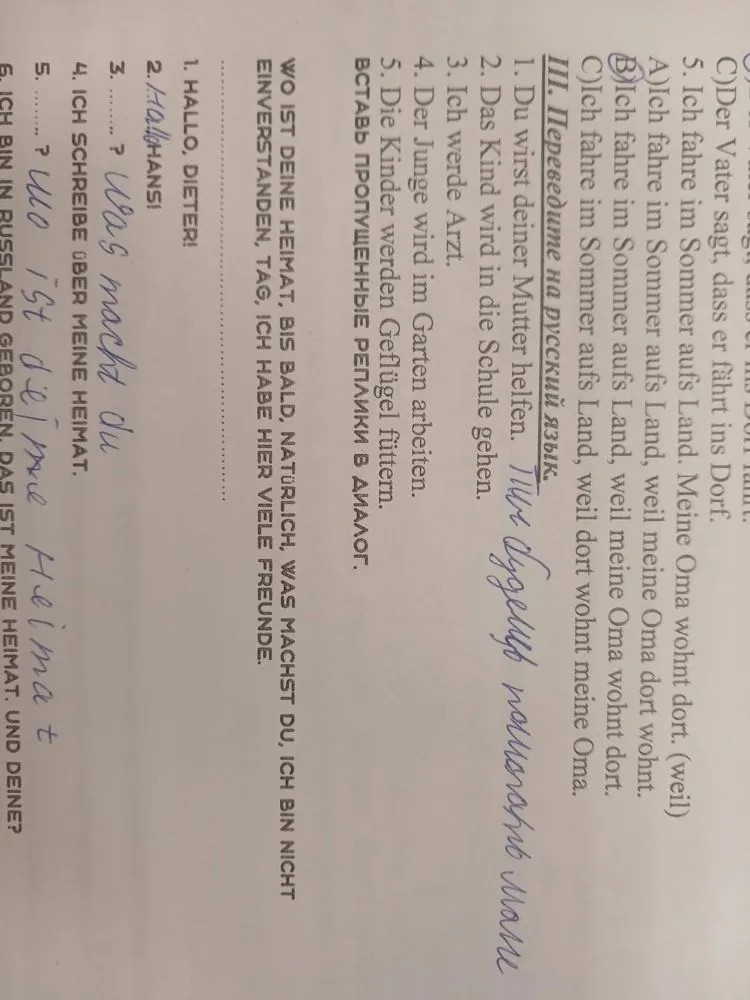 C)Der Vater sagt, dass er fährt ins Dorf.
5. Ich fahre im Sommer aufs Land. Meine Oma wohnt dort. (weil)
A)Ich fahre im Sommer aufs Land, weil meine Oma dort wohnt.
B)Ich fahre im Sommer aufs Land, weil meine Oma wohnt dort.
C)Ich fahre im Sommer aufs Land, weil dort wohnt meine Oma.
III. Переведите на русский язык.
1. Du wirst deiner Mutter helfen. Ты будешь помогать маме
2. Das Kind wird in die Schule gehen.
3. Ich werde Arzt.
4. Der Junge wird im Garten arbeiten.
5. Die Kinder werden Geflügel füttern.
ВСТАВЬ ПРОПУЩЕННЫЕ РЕПЛИКИ В ДИАЛОГ.
WO IST DEINE HEIMAT, BIS BALD, NATÜRLICH, WAS MACHST DU, ICH BIN NICHT
EINVERSTANDEN, TAG, ICH HABE HIER VIELE FREUNDE.
1. HALLO, DIETER!
2. Hallo HANS!
3. ........ ? Was macht du
4. ICH SCHREIBE ÜBER MEINE HEIMAT.
5. ........ ? wo ist deine Heimat
6. ICH BIN IN RUSSLAND GEBOREN. DAS IST MEINE HEIMAT. UND DEINE?